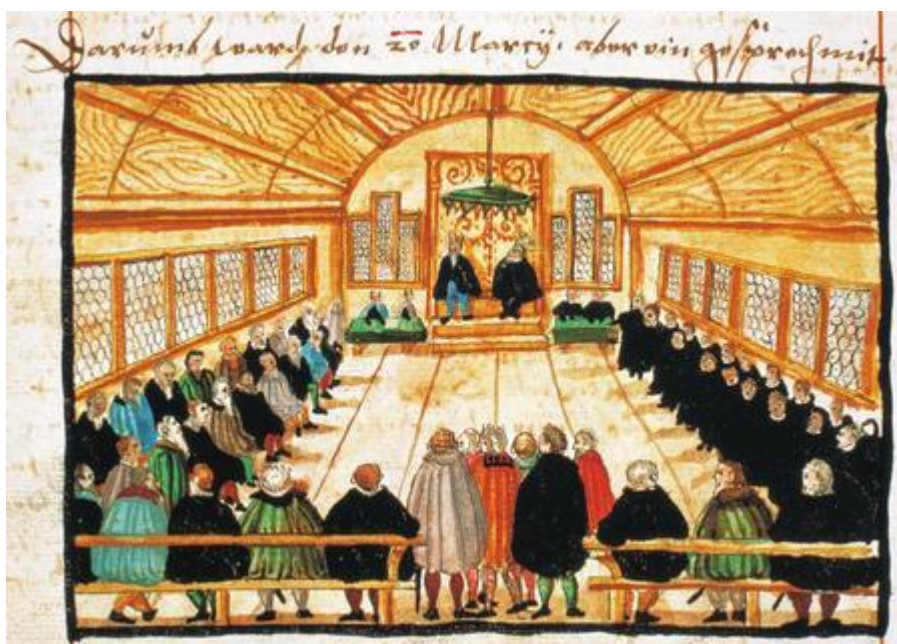 Darumb ward den 20 Martij aber ein gespräch mit